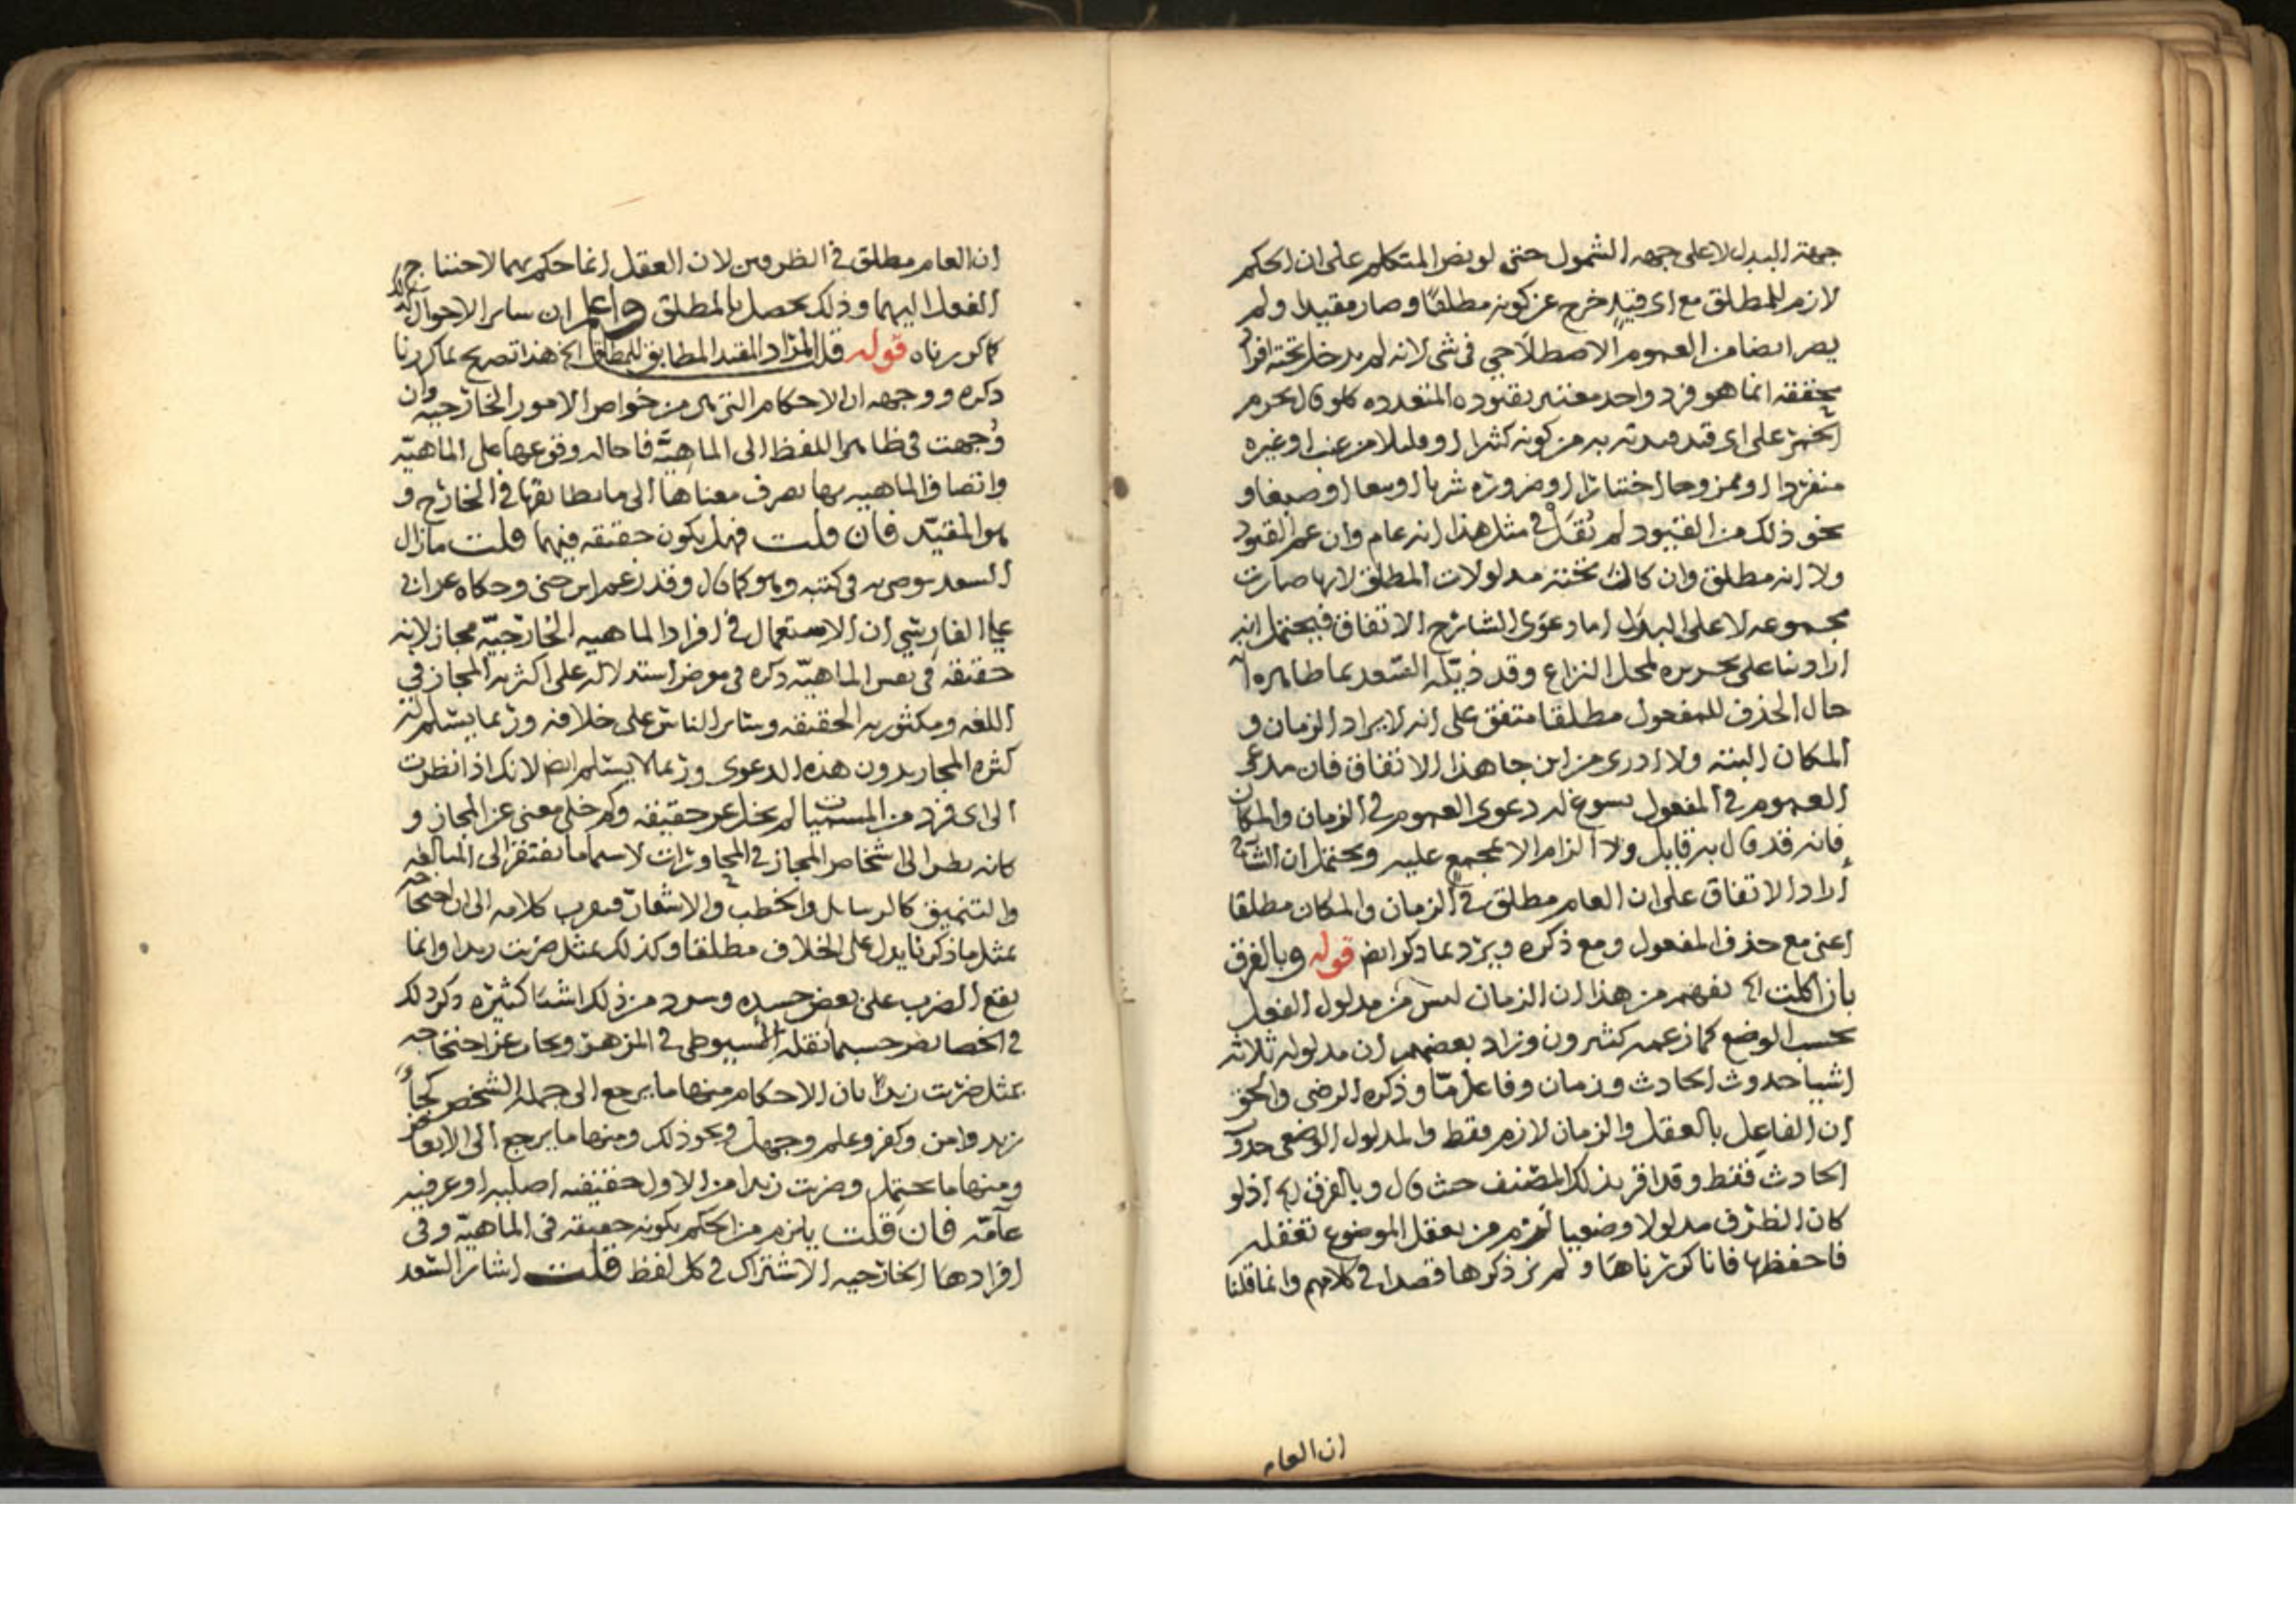 جهة البدل لا على جهه الشمول حتى لو نص المتكلم على ان الحكم
لازم للمطلق مع اى قيد خرج عن كونه مطلقا وصار مقيدا ولم
يصر ايضا من العموم الاصطلاحي فى شى لانه لم يدخل تحته افراد
انما هو فرد واحد معتبر بقيوده المتعدده كما لو قال يحرم
الخمر على اى قيد من كونه كثيرا او قليلا من عنب او غيره
منفردا او ممزوجا اختيارا او ضرورة شربا او صبغا و
نحو ذلك من القيود لم نقل فى مثل هذا انه عام وان عم القيود
ولا انه مطلق وان كانت تحته مدلولات المطلق لانها صارت
مجموعه لا على البدل اما دعوى الشارح الاتفاق فيحتمل انه
اراد بنا على تحريره لمحل النزاع وقد السعد بما ظاهره ا
حال الحذف للمفعول مطلقا متفق على انه لا يراد الزمان و
المكان البته ولا ادرى من اين جا هذا الاتفاق فان مدعى
العموم فى المفعول يسوغ له دعوى العموم فى الزمان والمكان
فانه قد قال به قايل ولا الزام الا بمجمع عليه ويحتمل ان الشارح
اراد الاتفاق على ان العام مطلق فى الزمان والمكان مطلقا
اعنى مع حذف المفعول ومع ذكره ويرد بما ذكر ايض قوله وبالفرق
بان الخ يفهم من هذا ان الزمان ليس من مدلول الفعل
بحسب الوضع كما زعمه كثيرون وزاد بعضهم ان مدلوله ثلاثه
اشيا حدوث الحادث وزمان وفاعل ما وذكره الرضى والحق
ان الفاعل بالعقل والزمان لازم فقط والمدلول الوضعى حدوث
الحادث فقط وقد اقر بذلك المصنف حيث قال وبالفرق الخ اذ لو
كان الظرف مدلولا وضعيا لزم من يعقل الموضوع تعقله
فاحفظها فانا كررناها ولم نر ذكرها قصدا فى كلامهم وانما قلنا
ان العام
ان العام مطلق فى الظرفين لان العقل انما حكم بهما لاحتياج
الفعل اليهما وذلك يحصل بالمطلق واعلم ان ساير الاحوال كذلك
كما كررناه قوله قلنا المراد المقيد المطابق للمطلق الخ هذا تصريح بما كررنا
ذكره ووجهه ان الاحكام التى هى من خواص الامور الخارجيه وان
وجهت فى ظاهر اللفظ الى الماهية فاحاله وقوعها على الماهية
واتصاف الماهيه بها يصرف معناها الى ما يطابقها فى الخارج و
هو المقيد فان قلت فهل يكون حقيقه فيهما قلت مازال
السعد يوصى به فى كتبه وهو كما قال وقد زعم ابن جنى وحكاه عن ابى
على الفارسي ان الاستعمال فى افراد الماهيه الخارجية مجاز لانه
حقيقه فى نفس الماهية ذكره فى موضع استدلاله على اكثرية المجاز فى
اللغه ومكثوريه الحقيقه وساير الناس على خلافه وربما يسلم له
كثره المجاز بدون هذه الدعوى وربما لا يسلم ايض لانك اذا نظرت
الى اى فرد من المسميات لم يخل عن حقيقه وكم خلى معنى عن المجاز و
كانه نظر الى اشخاص المجاز فى المحاورات لا سيما ما يفتقر الى المبالغه
والتنميق كالرسايل والخطب والاشعار فيقرب كلامه الى ان احتجاجه
بمثل ما ذكرنا يدل على الخلاف مطلقا وكذلك بمثل ضربت زيدا وانما
يقع الضرب على بعض جسده وسرد من ذلك اشيا كثيره ذكر ذلك
فى الخصايص حسبما نقله السيوطى فى المزهر ويجاب عن احتجاجه
بمثل ضربت زيدا بان الاحكام منها ما يرجع الى جملة الشخص كجاء
زيد وامن وكفر وعلم وجهل ونحو ذلك ومنها ما يرجع الى الابعاض
ومنها ما يحتمل وضربت زيدا من الاول حقيقه اصليه او عرفيه
عامة فان قلت يلزم من الحكم بكونه حقيقه فى الماهية وفى
افرادها الخارجيه الاشتراك فى كل لفظ قلت اشار السعد